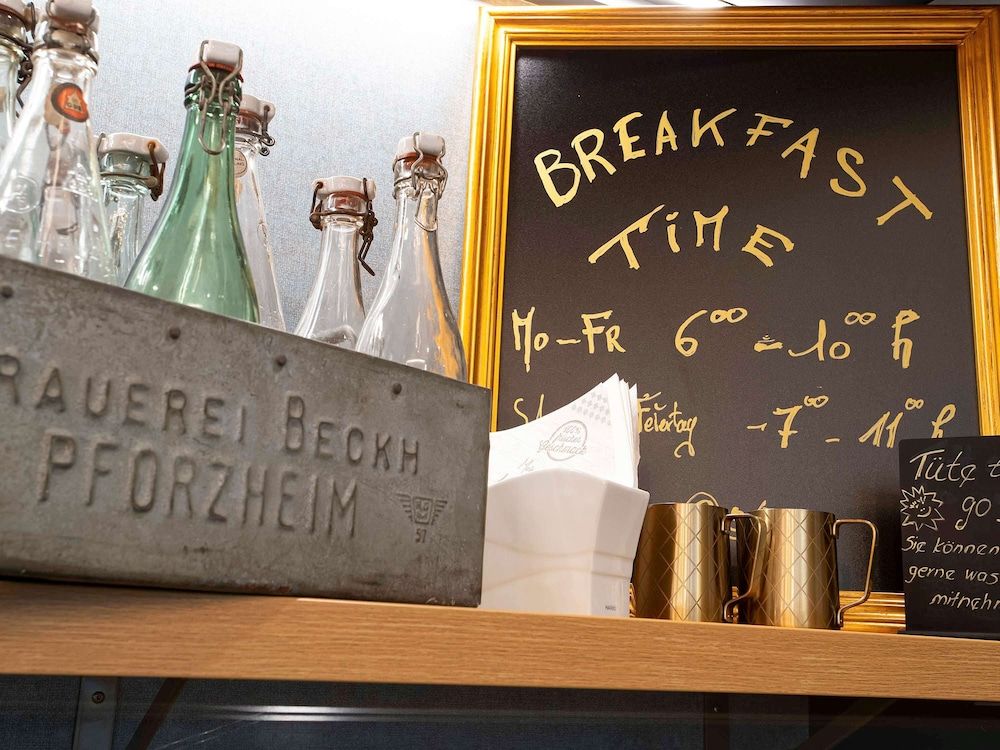 BREAKFAST
TiME
Mo-FR 6⁰⁰ - 10⁰⁰ h
Feiertag - 7⁰⁰ - 11⁰⁰ h
RAUEREI BECKH
PFORZHEIM
57
100%
Tüte t
go
Sie können
gerne was
mitnehm